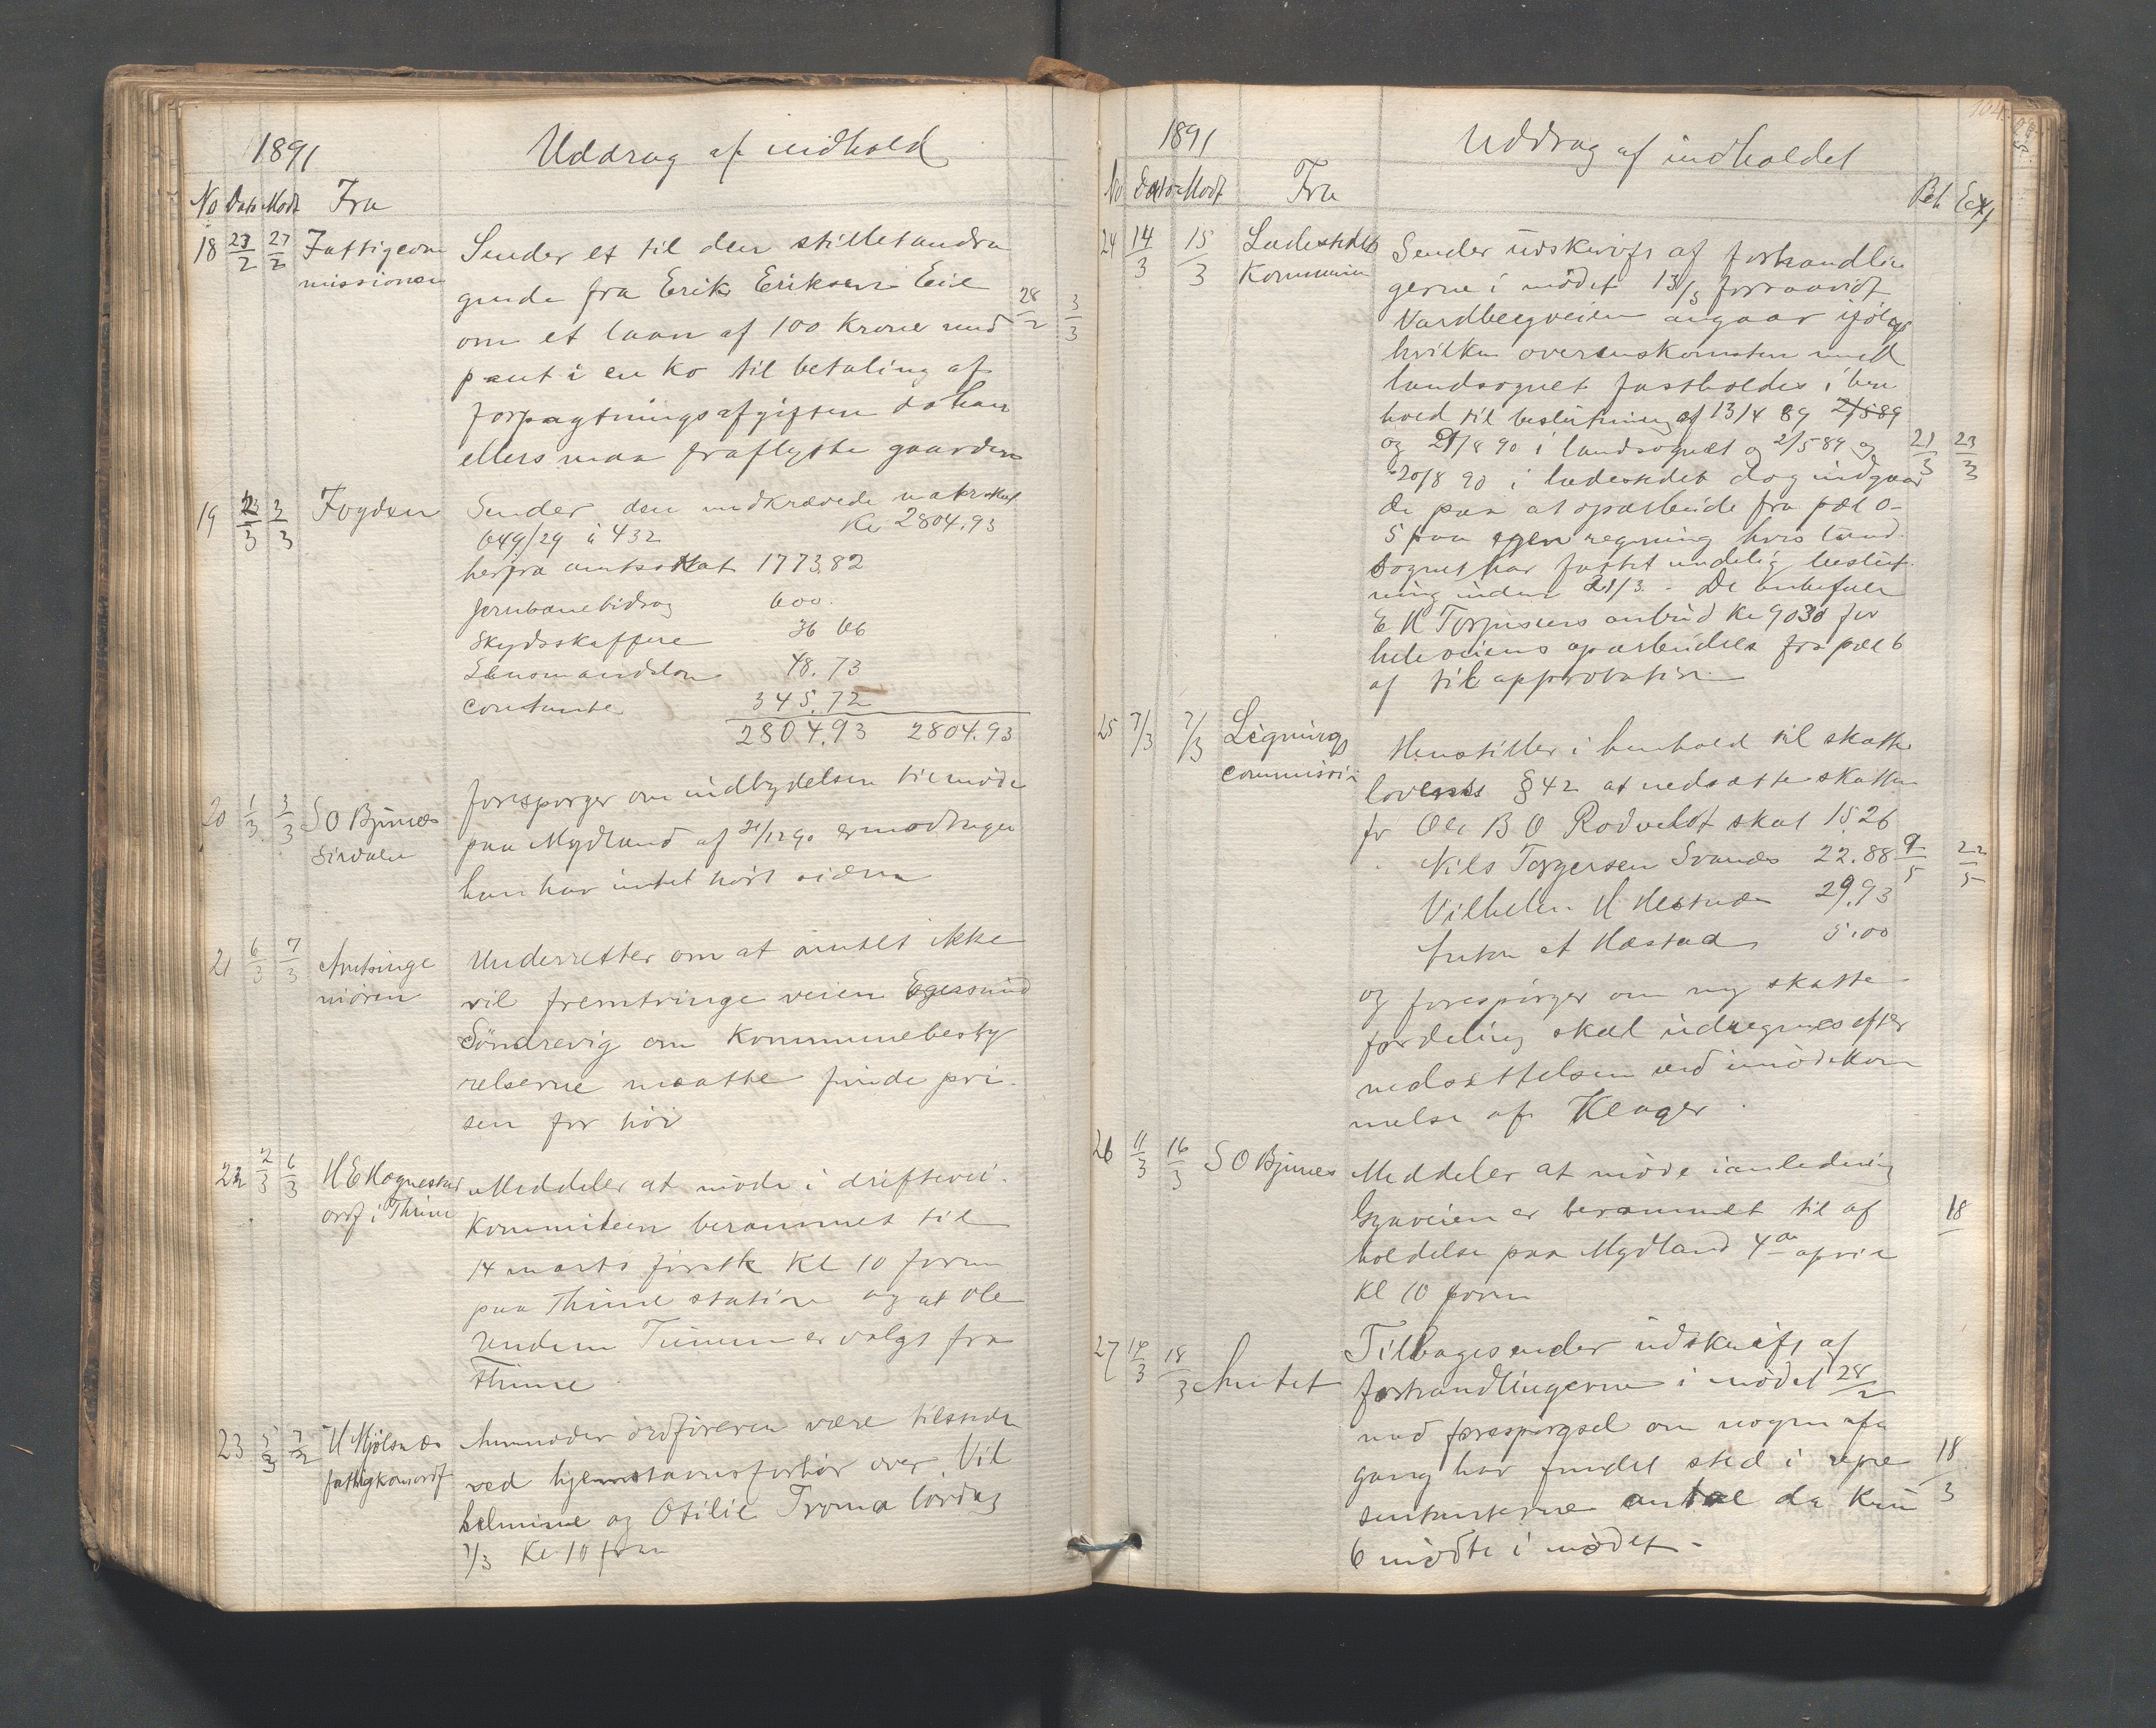 1891 Uddrag af indhold
No Dato Modt Fra
18 23/2 27/2 Fattigcom Sender et til den stillet andra
missionen gende fra Erik Eriksen Eie 28/2 3/3
om et laan af 100 Kroner mod
pant i en Ko til betaling af
forpagtningsafgiften da han
ellers maa fraflytte gaarden
19 2/3 3/3 Fogden Sender den indkrævede matrskat
649/29 à 432 Kr 2804.93
herfra amtsskat 1773.82
Jernbanebidrag 600.
Skydsskaffere 36 66
Lensmandslon 48.73
contante 345.72
2804.93 2804.93
20 1/3 3/3 S O Bjunes forespørger om indbydelsen til møde
Sirdalen paa Mydland af 31/12 90 er modtagen
han har intet hørt siden
21 6/3 7/3 Amtsinge Underretter om at amtet ikke
niøren vil fremtvinge veien Egersund
Söndrevig om Kommunebesty
relserne maatte finde pri
sen for höi
22 2/3 6/3 H E Hognestad Meddeler at möde i driftevei
ordf i Thime Kommiteen berammet til
14 marts förstk Kl 10 form
paa Thime station og at Ole
Endern Tunem er valgt fra
Thime
23 5/3 7/3 H Mjølsnæs Anmoder ordføreren være tilstede
fattigkomordf ved hjemstavnsforhör over Vil
helmine og Otilie Tromø lørdag
7/3 Kl 10 form
1891 Uddrag af indholdet
No Dato Modt Fra Beh Exp
24 14/3 15/3 Ladestedets Sender udskrift af forhandlin
Kommune gerne i mødet 13/3 forsaavidt
Vardbergveien angaar ifølge
hvilken overenskomsten med
landsognet fastholdes i hen
hold til beslutning af 13/4 89 2/5 89
og 21/8 90 i landsognet og 2/5 89 og 21/3 23/3
20/8 90 i ladestedet dog indgaar
de paa at oparbeide fra pæl 0-
5 paa egen regning hvis land
sognet har fattet endelig beslut
ning inden 21/3 - De anbefaler
E H Torjusens anbud Kr 9030 for
heleveiens oparbeidelse fra pæl 6
af til approbation
25 7/3 7/3 Lignings Henstiller i henhold til skatte
commission lovens §42 at nedsætte skatten
for Ole B O Rodvelt skat 15.26
Nils Torgersen Svanes 22.88 9/5 22/5
Vilhelm H Hestnæs 29.93
Enken et Hæstad 5.00
og forespørger om ny skatte
fordeling skal udregnes efter
nedsættelsen ved imödekom
melse af Klager.
26 11/3 16/3 S O Bjunes Meddeler at möde i anledning
Gyaveien er berammet til af 18
holdelse paa Mydland 4de april
Kl 10 form
27 14/3 18/3 Amtet Tilbagesender udskrift af
forhandlingerne i mödet 28/2
med forespørgsel om nogen af
gang har fundet sted i repre 18/3
sentanternes antal da kun
6 mødte i mødet -